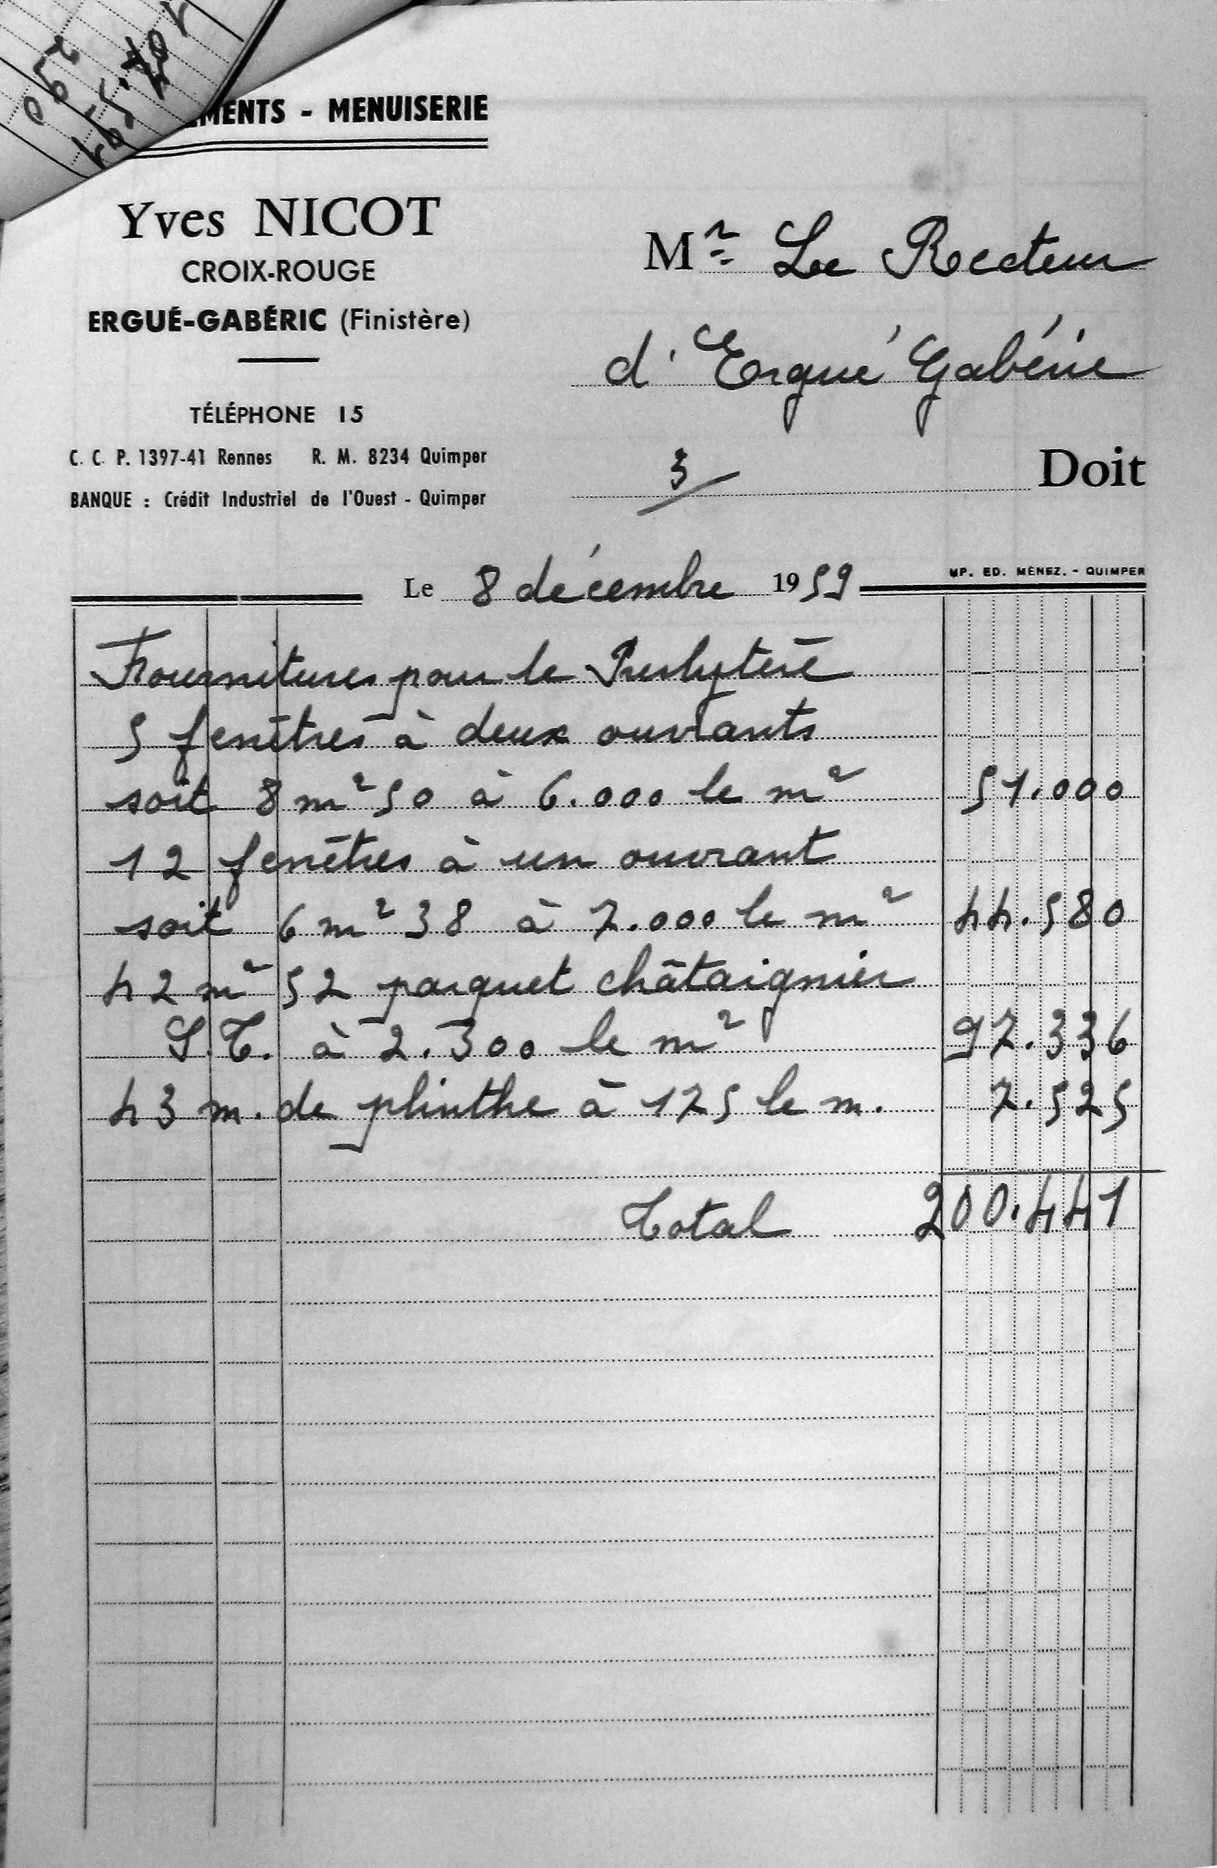 MENTS - MENUISERIE
Yves NICOT
CROIX-ROUGE
ERGUÉ-GABÉRIC (Finistère)
TÉLÉPHONE 15
C. C. P. 1397-41 Rennes R. M. 8234 Quimper
BANQUE : Crédit Industriel de l'Ouest - Quimper
Mr Le Recteur
d'Ergué Gabéric
3/ Doit
Le 8 décembre 1959
MP. ED. MÉNEZ. - QUIMPER
Fournitures pour le Presbytère
5 fenêtres à deux ouvrants
soit 8 m² 50 à 6.000 le m² 51.000
12 fenêtres à un ouvrant
soit 6 m² 38 à 7.000 le m² 44.580
42 m² 52 parquet châtaignier
S.T. à 2.300 le m² 97.336
43 m. de plinthe à 175 le m. 7.525
Total 200.441